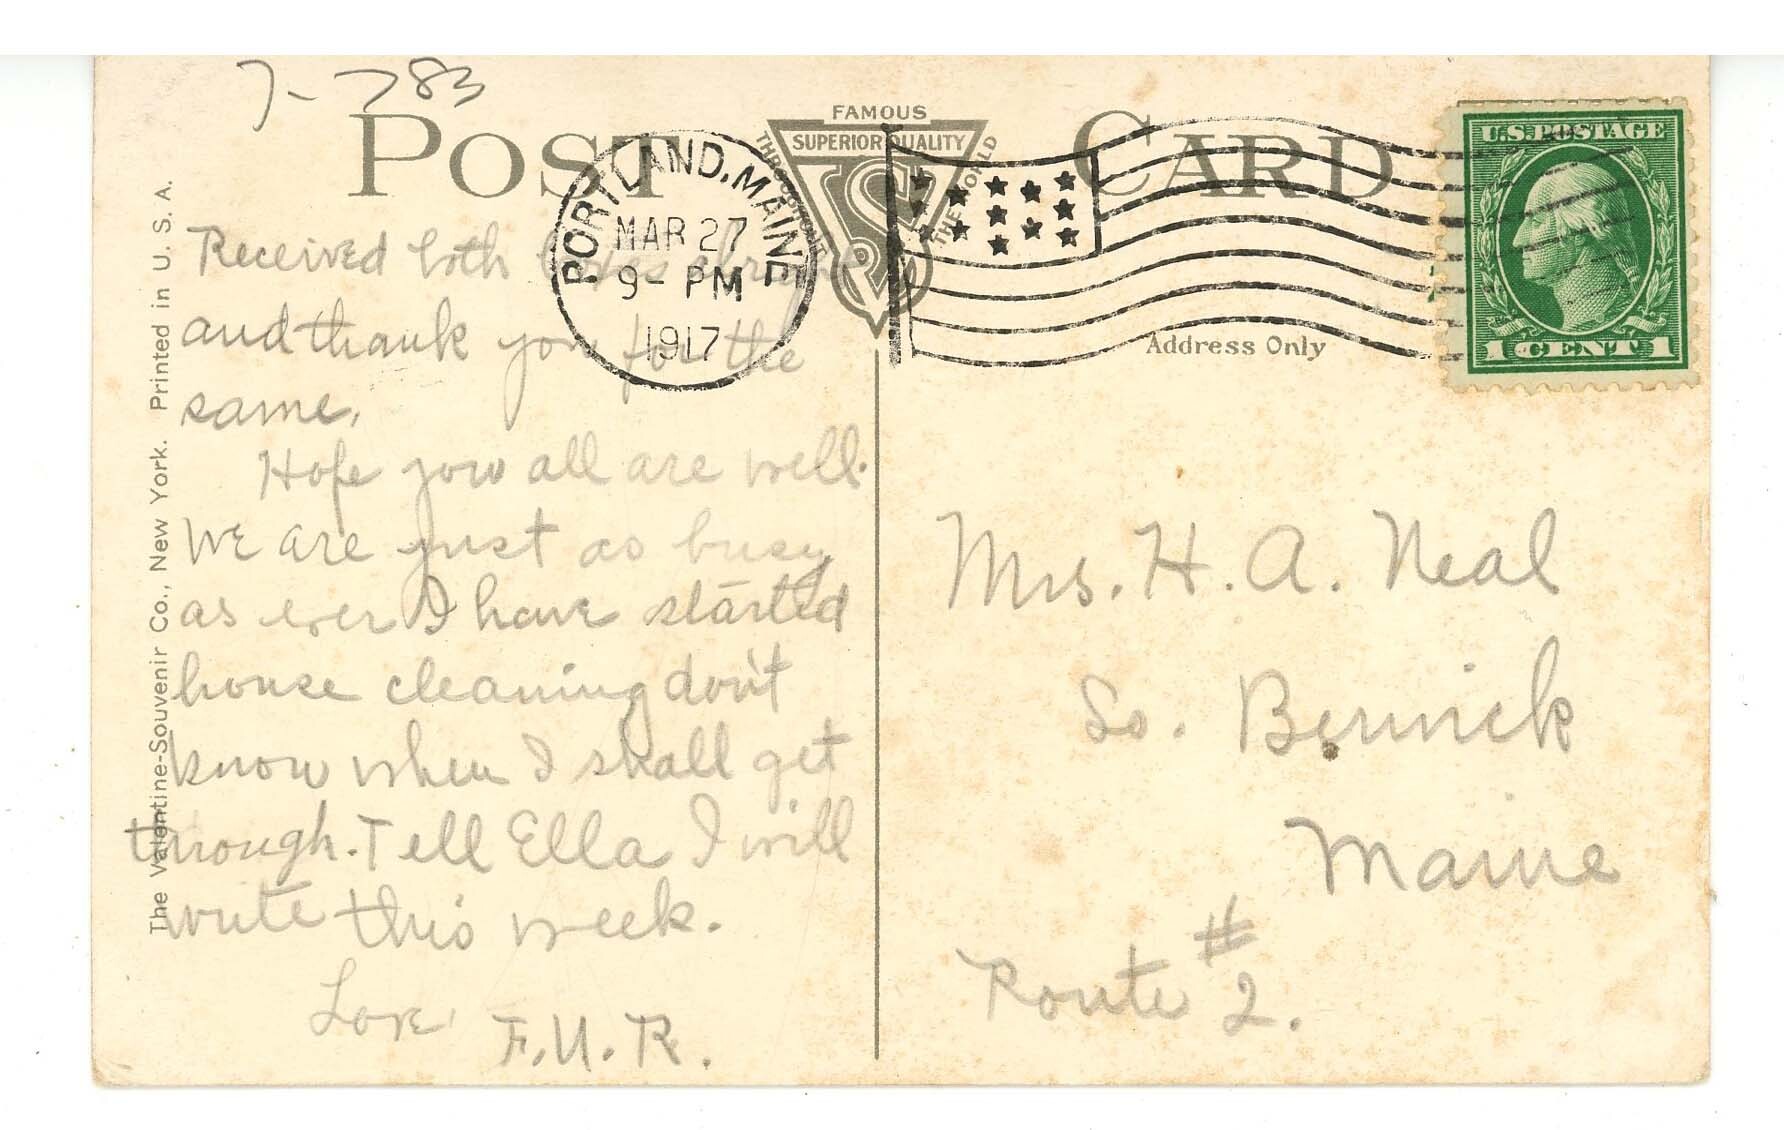 7-783
POST CARD
FAMOUS
SUPERIOR QUALITY
THROUGHOUT
THE WORLD
VS
Co
PORTLAND, MAINE
MAR 27
9- PM
1917
U.S. POSTAGE
1 CENT 1
Address Only
The Valentine-Souvenir Co., New York. Printed in U. S. A.
Received both
and thank you for the
same.
Hope you all are well.
We are just as busy
as ever I have started
house cleaning don't
know when I shall get
through. Tell Ella I will
write this week.
Love
F.U.R.
Mrs. H. A. Neal
So. Berwick
Maine
Route #2.